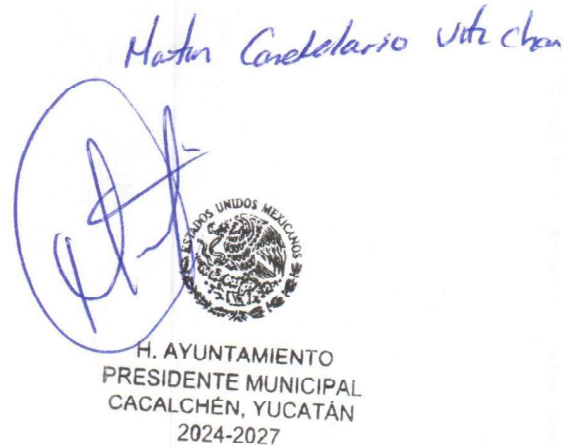 Martin Candelario Uitz Chan
ESTADOS UNIDOS MEXICANOS
H. AYUNTAMIENTO
PRESIDENTE MUNICIPAL
CACALCHÉN, YUCATÁN
2024-2027